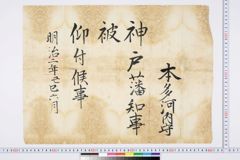 本多河内守
神戸藩知事
被
仰付候事
明治二年己巳六月